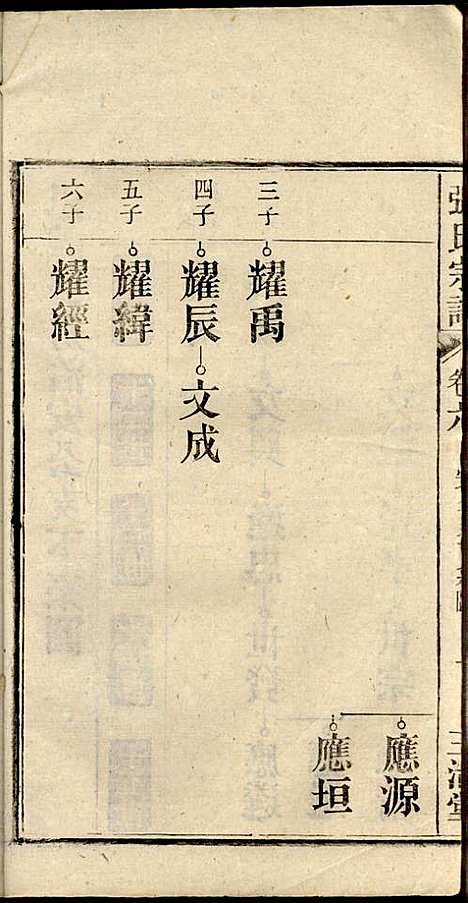 張氏宗譜
卷六
應源
應垣
三子 耀禹
四子 耀辰 文成
五子 耀緯
六子 耀經